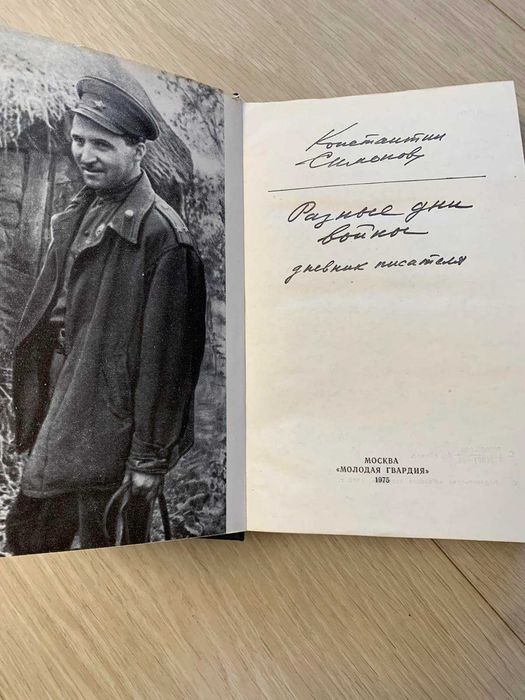 Константин
Симонов
Разные дни
войны
дневник писателя
МОСКВА
«МОЛОДАЯ ГВАРДИЯ»
1975